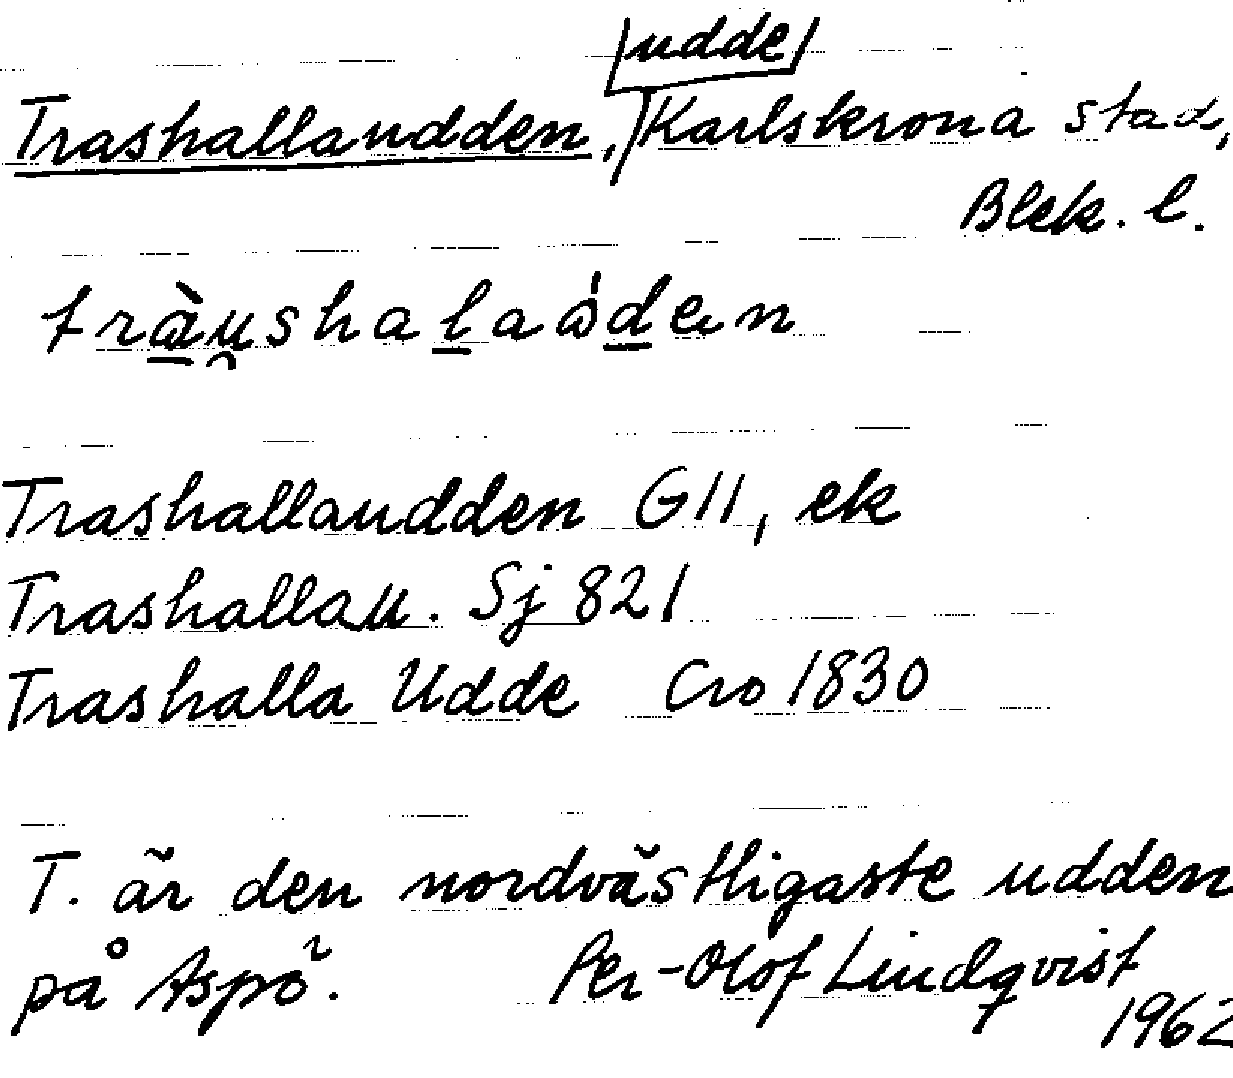 udde
Trashallaudden, Karlskrona stad,
Blek. l.
tràu̯shalaȧ́den
Trashallaudden G11, ek
Trashallau. Sj 821
Trashalla Udde Cro 1830
T. är den nordvästligaste udden
på Aspö. Per-Olof Lindqvist
1962